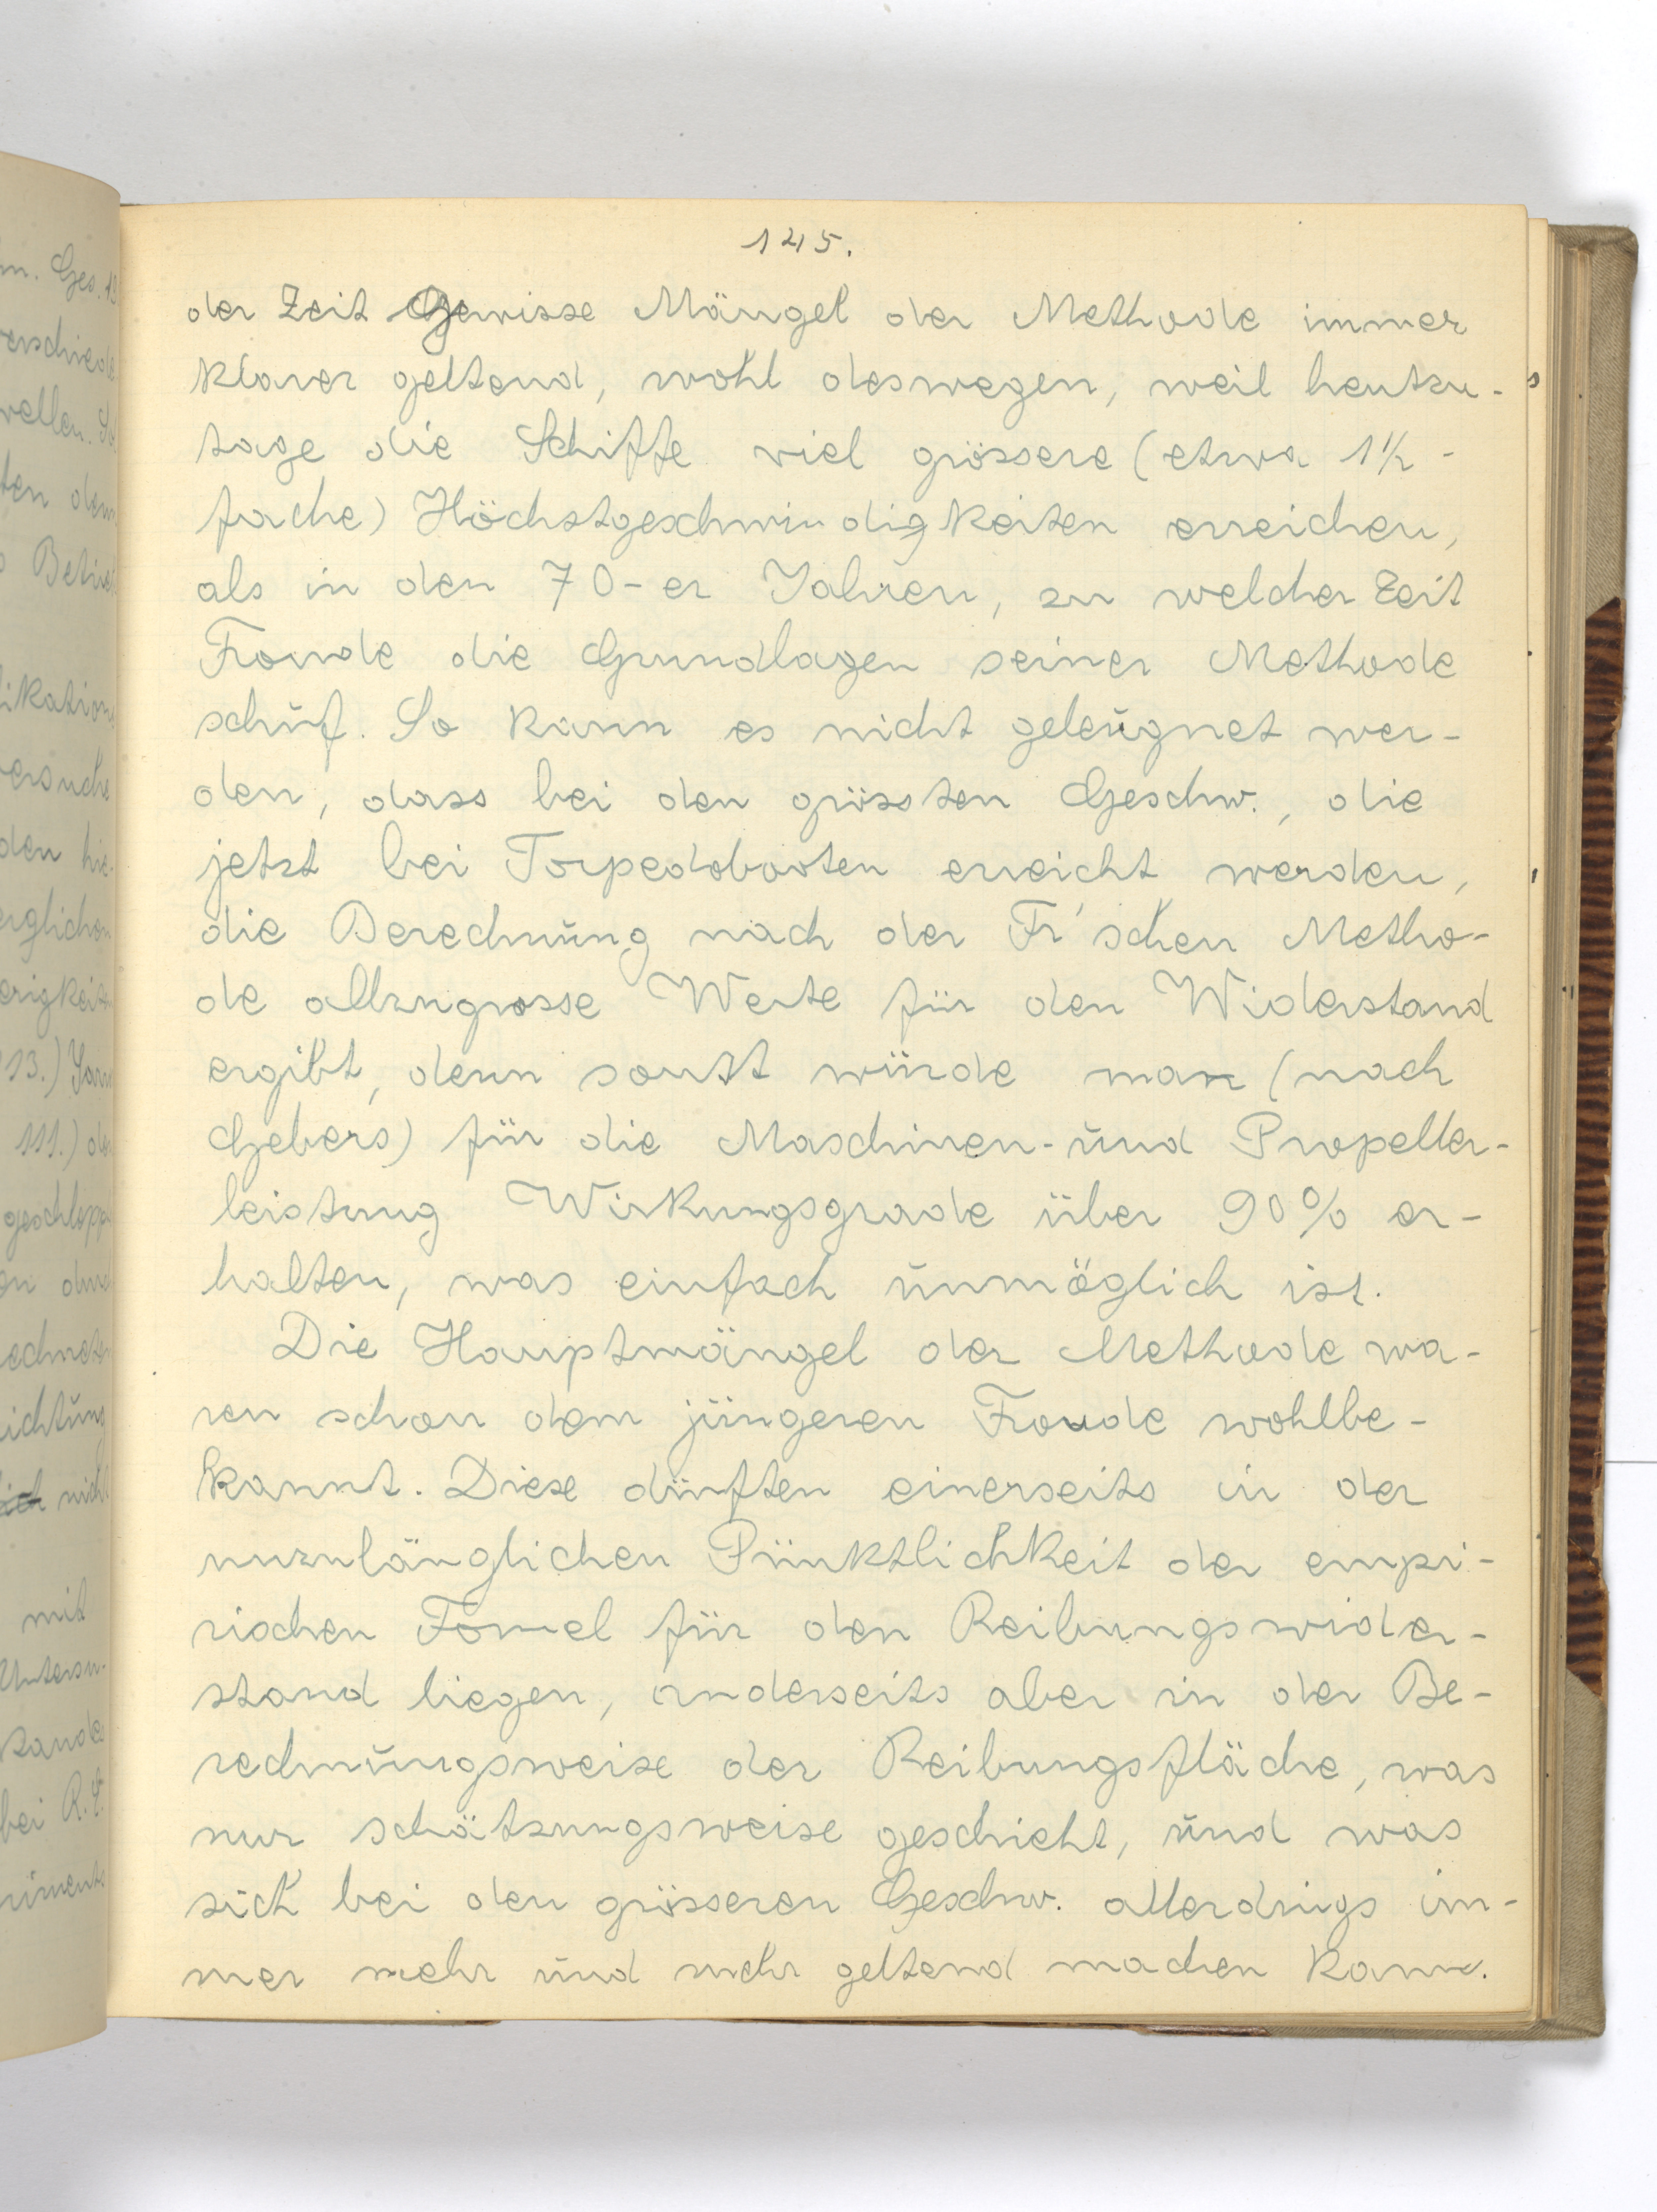 145.
der Zeit Gewisse Mängel der Methode immer
klarer geltend, wohl deswegen, weil heutzu-
tage die Schiffe viel grössere (etwa 1½-
fache) Höchstgeschwindigkeiten erreichen,
als in den 70-er Jahren, zu welcher Zeit
Froude die Grundlagen seiner Methode
schuf. So kann es nicht geleugnet wer-
den, dass bei den grössten Geschw., die
jetzt bei Torpedobooten erreicht werden,
die Berechnung nach der Fr'schen Metho-
de allzugrosse Werte für den Widerstand
ergibt, denn sonst würde man (nach
Gebers) für die Maschinen- und Propeller-
leistung Wirkungsgrade über 90% er-
halten, was einfach unmöglich ist.
Die Hauptmängel der Methode wa-
ren schon dem jüngeren Froude wohlbe-
kannt. Diese dürften einerseits in der
unzulänglichen Pünktlichkeit der empi-
rischen Formel für den Reibungswider-
stand liegen, anderseits aber in der Be-
rechnungsweise der Reibungsfläche, was
nur schätzungsweise geschieht, und was
sich bei den grösseren Geschw. allerdings im-
mer mehr und mehr geltend machen kann.